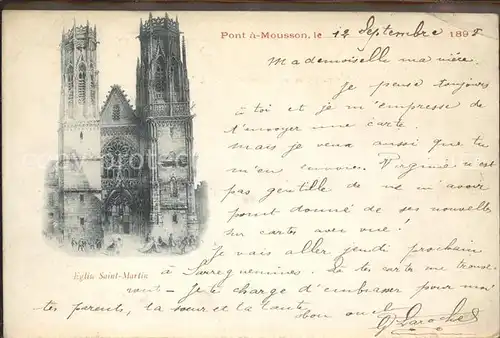 Pont à-Mousson, le 12 Septembre 1898
Mademoiselle ma nièce.
Je pense toujours
à toi et je m'empresse de
t'envoyer une carte.
Mais je veux aussi que tu
m'en envoies. Virginie n'est
pas gentille de ne m'avoir
point donné de ses nouvelles
sur cartes avec vue!
Je vais aller jeudi prochain
à Sarreguemines. Là tes cartes me trouve
ront - Je te charge d'embrasser pour moi
tes parents, ta sœur et la tante
ton oncle
G Laroche
Eglise Saint-Martin